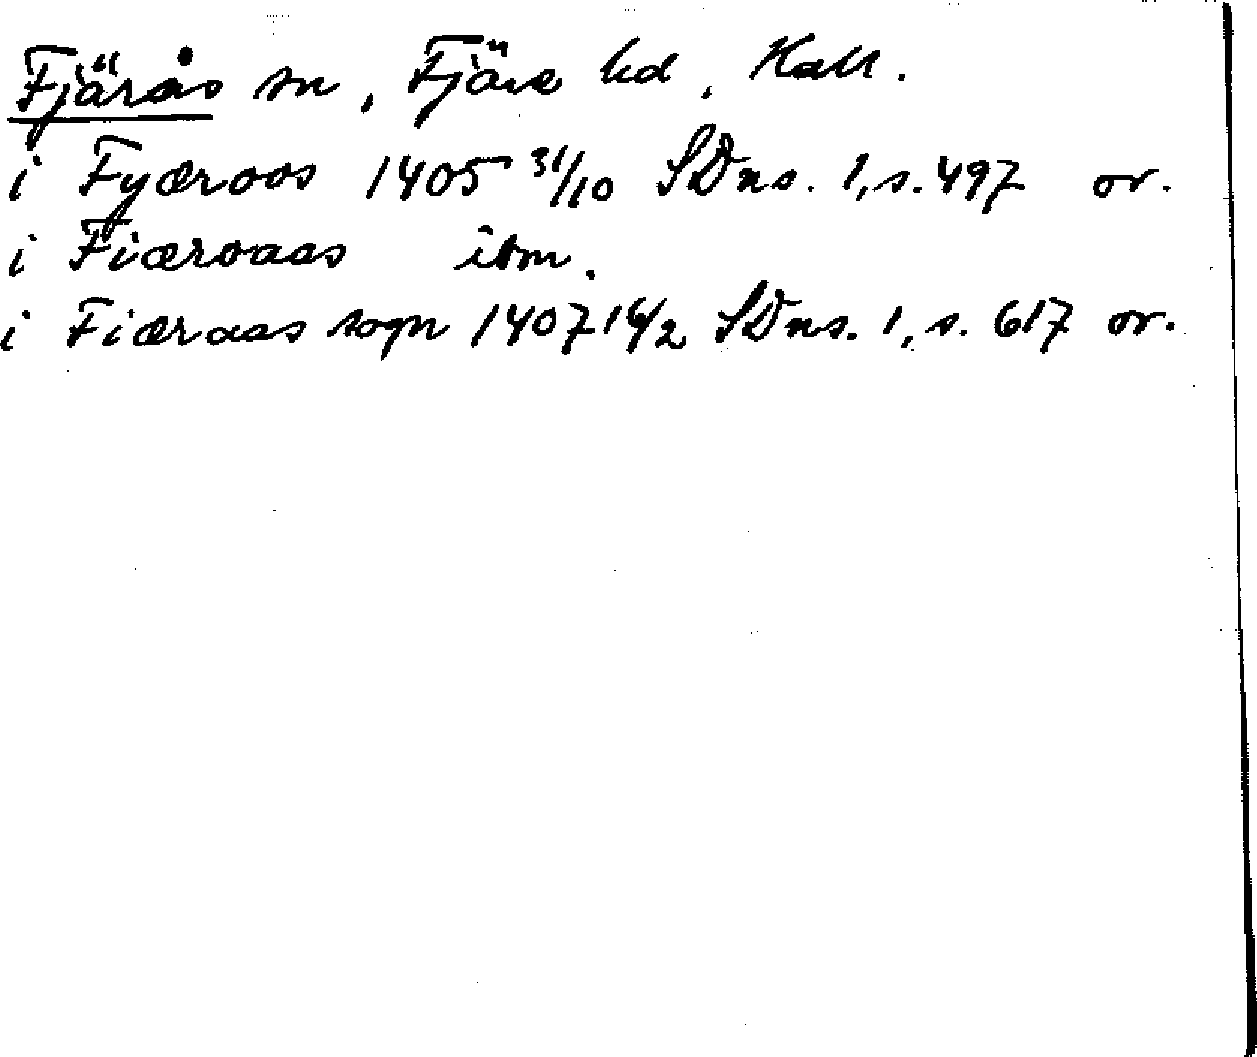 Fjärås sn, Fjäre hd, Hall.
i Fyæroos 1405 31/10 SDns. 1, s. 497 or.
i Fiæroaas ibm.
i Fiæraas sogn 1407 16/2 SDns. 1, s. 617 or.